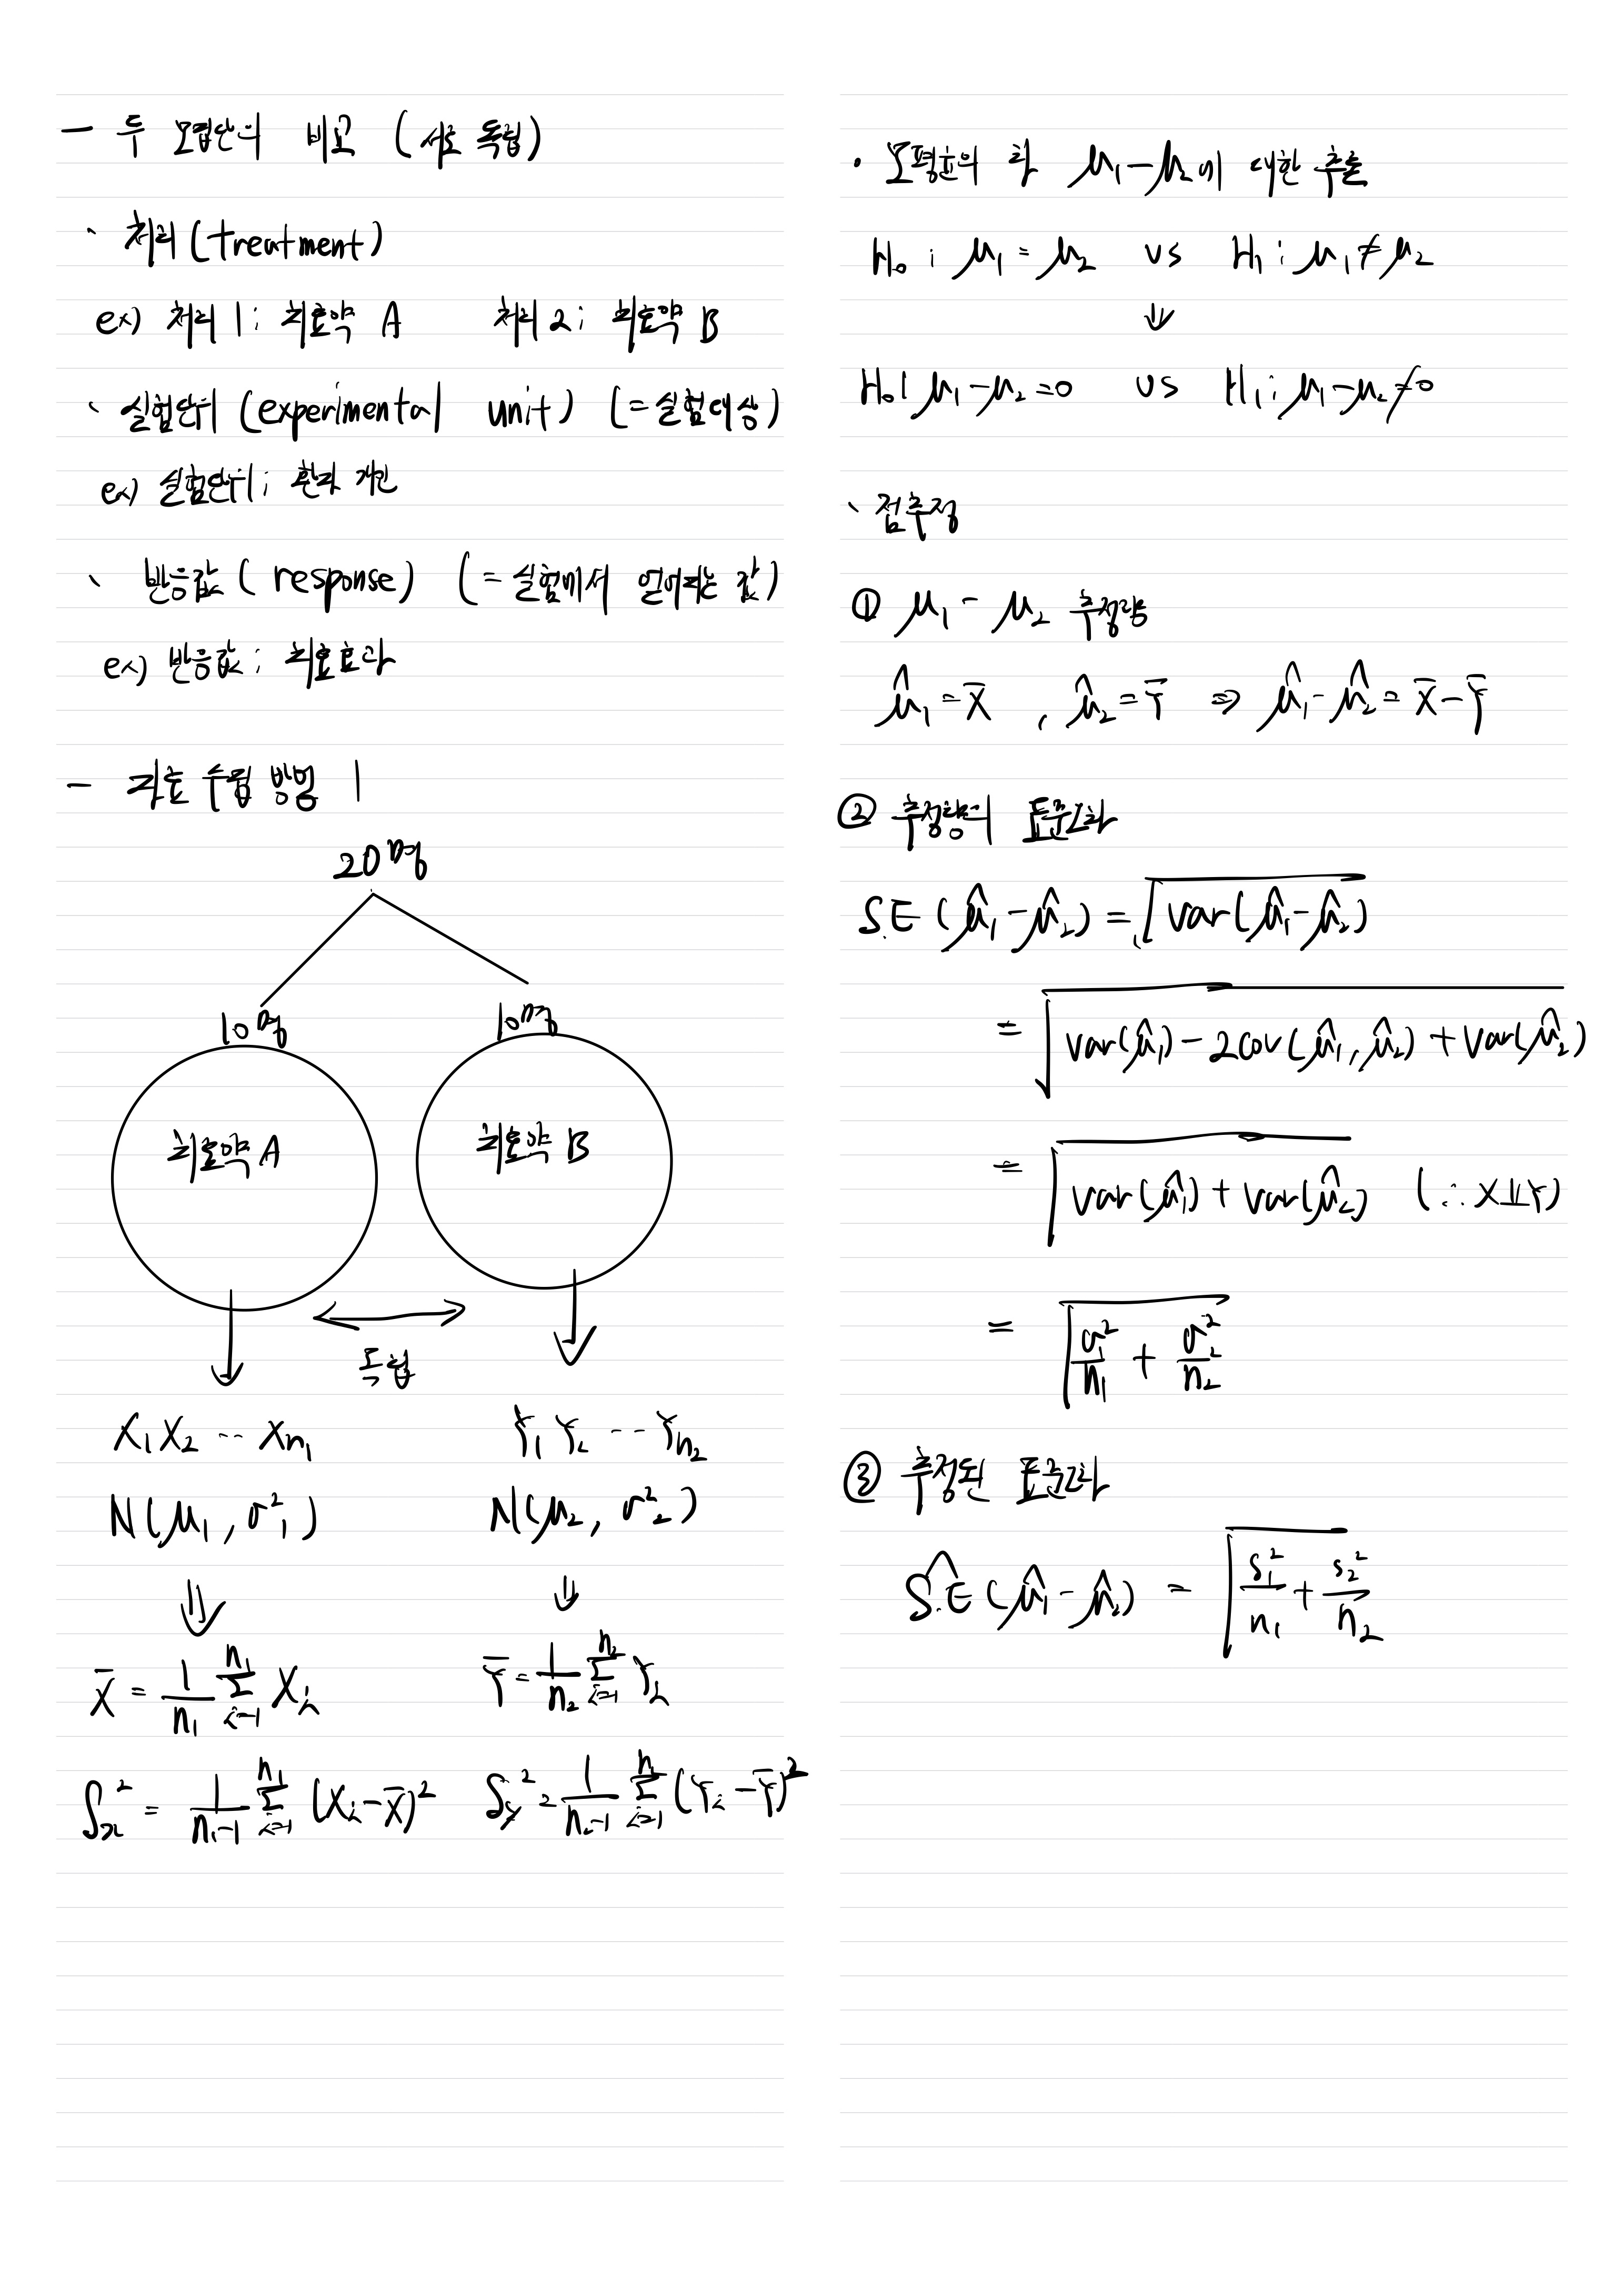 - 두 모집단의 비교 (서로 독립)
· 처리 (treatment)
ex) 처리 1 : 치료약 A 처리 2 : 치료약 B
· 실험단위 (experimental unit) (= 실험대상)
ex) 실험단위 : 환자 개인
· 반응값 ( response) (= 실험에서 얻어지는 값)
ex) 반응값 : 치료효과
- 자료 수집 방법 1
20명
10명 10명
치료약 A 치료약 B
독립
X₁ X₂ ... Xn₁ Y₁ Y₂ ... Yn₂
N(μ₁, σ₁²) N(μ₂, σ₂²)
⇓ ⇓
X̄ = 1/n₁ Σᵢ₌₁ⁿ¹ Xᵢ Ȳ = 1/n₂ Σᵢ₌₁ⁿ² Yᵢ
Sx² = 1/(n₁-1) Σᵢ₌₁ⁿ¹ (Xᵢ - X̄)² Sy² = 1/(n₂-1) Σᵢ₌₁ⁿ² (Yᵢ - Ȳ)²
· 모평균의 차 μ₁-μ₂에 대한 추론
H₀ : μ₁ = μ₂ vs H₁ : μ₁ ≠ μ₂
⇓
H₀ : μ₁ - μ₂ = 0 vs H₁ : μ₁ - μ₂ ≠ 0
· 점추정
① μ₁ - μ₂ 추정량
μ̂₁ = X̄ , μ̂₂ = Ȳ ⇒ μ̂₁ - μ̂₂ = X̄ - Ȳ
② 추정량의 표준오차
S.E (μ̂₁ - μ̂₂) = √var(μ̂₁ - μ̂₂)
= √(var(μ̂₁) - 2cov(μ̂₁, μ̂₂) + var(μ̂₂))
= √(var(μ̂₁) + var(μ̂₂)) (∵ X⫫Y)
= √(σ₁²/n₁ + σ₂²/n₂)
③ 추정된 표준오차
Ŝ.E (μ̂₁ - μ̂₂) = √(S₁²/n₁ + S₂²/n₂)